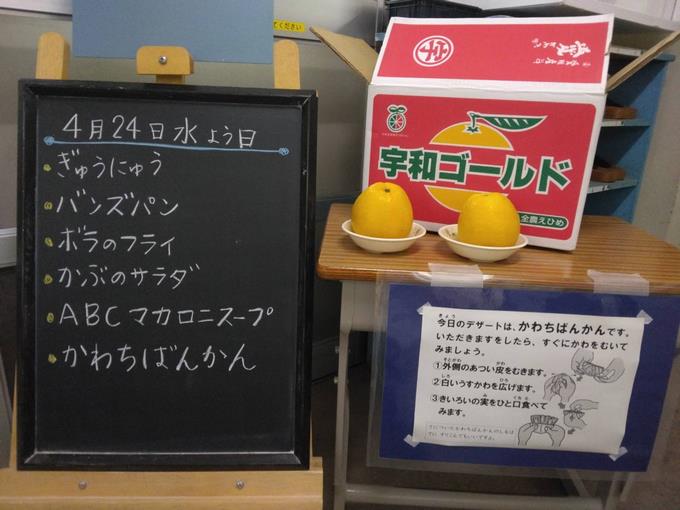 4月24日水よう日
ぎゅうにゅう
バンズパン
ボラのフライ
かぶのサラダ
ABCマカロニスープ
かわちばんかん
ください
宇和ゴールド
全農えひめ
今日のデザートは、かわちばんかんです。
いただきますをしたら、すぐにかわをむいて
みましょう。
①外側のあつい皮をむきます。
②白いうすかわを広げます。
③きいろいの実をひと口食べて
みます。